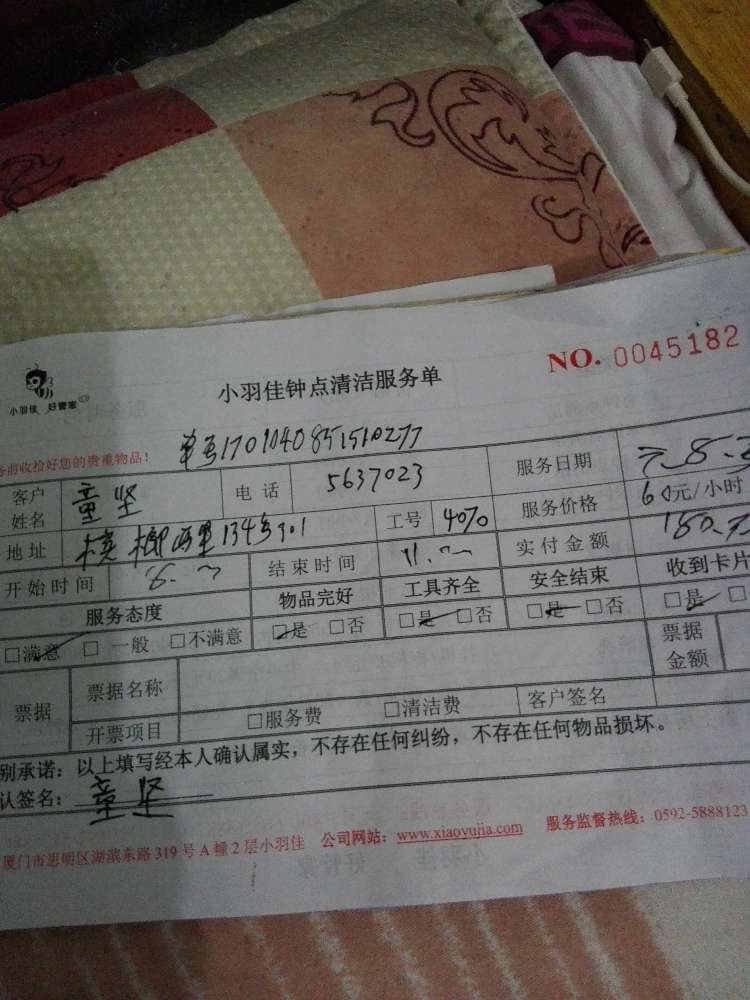 小羽佳 好管家
小羽佳钟点清洁服务单
NO. 0045182
前收拾好您的贵重物品!
单号170104085151027
客户姓名 童坚 电话 5637023 服务日期
地址 134号301 工号 服务价格 60元/小时
开始时间 8. 结束时间 11. 实付金额
服务态度 物品完好 工具齐全 安全结束 收到卡片
□满意 □一般 □不满意 □是 □否 □是 □否 □是 □否 □是 □
票据 票据名称 票据金额
开票项目 □服务费 □清洁费 客户签名
别承诺:以上填写经本人确认属实,不存在任何纠纷,不存在任何物品损坏。
认签名: 童坚
厦门市思明区湖滨东路319号A幢2层小羽佳 公司网站:www.xiaoyujia.com 服务监督热线:0592-5888123